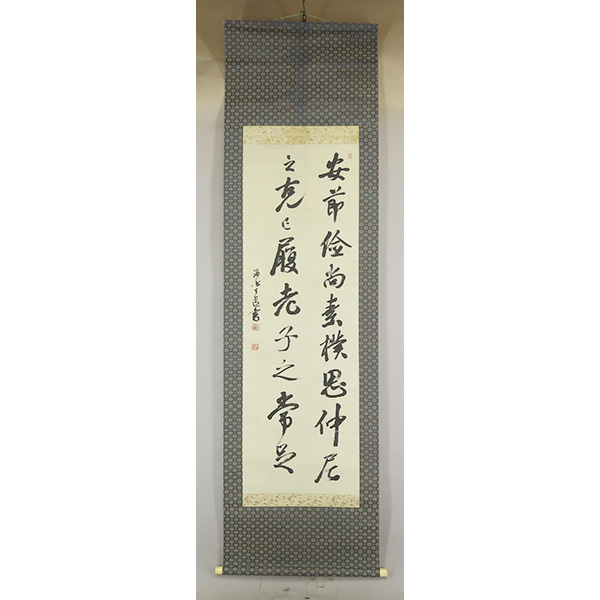 安節儉尚素樸思仲尼
之克己履老子之常足